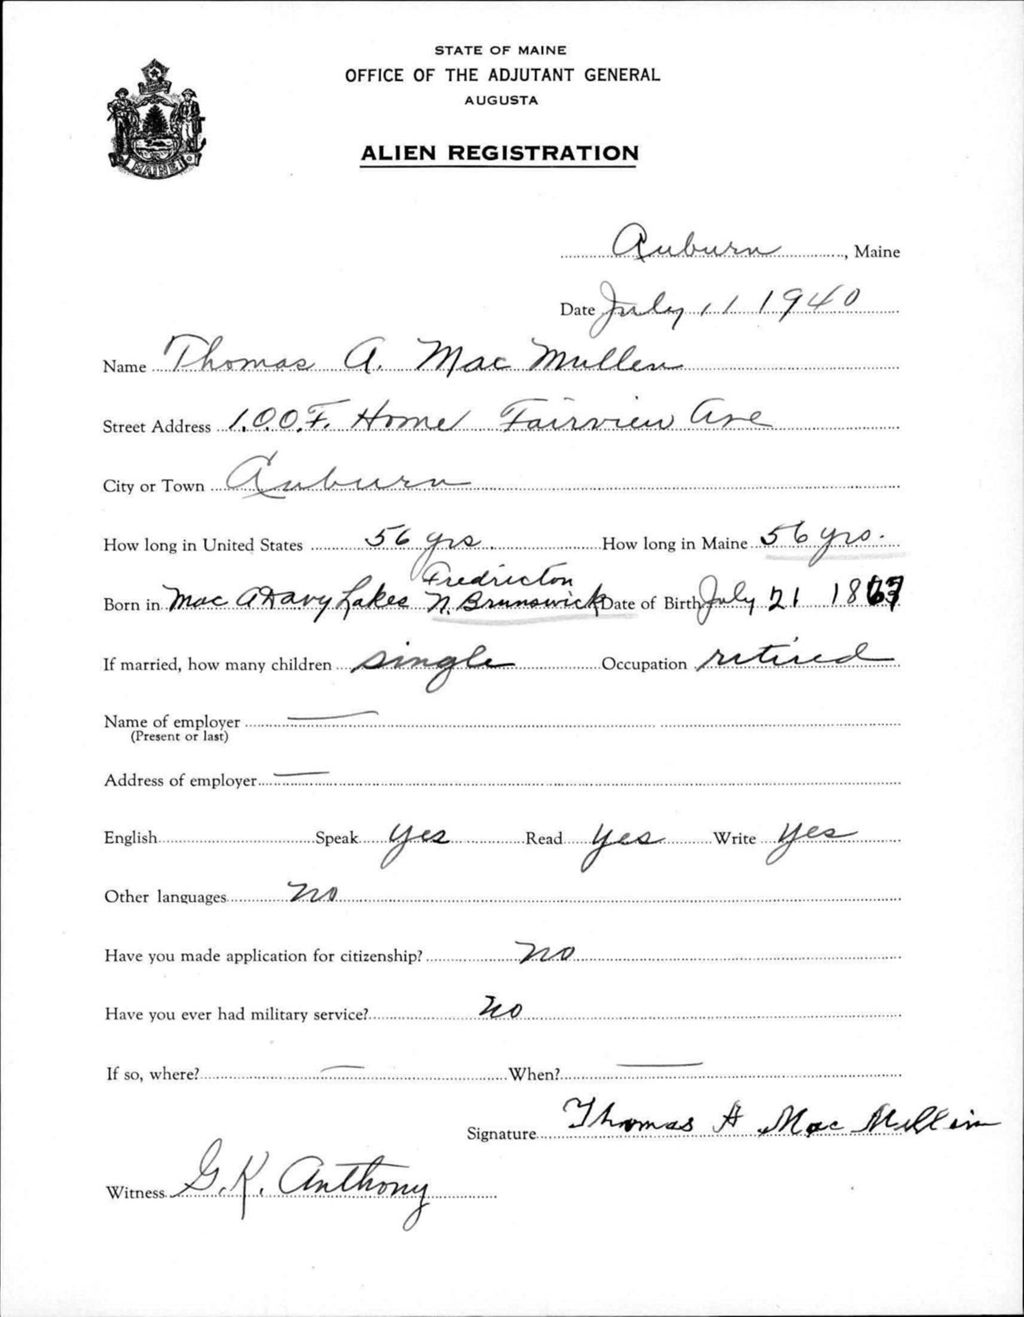 STATE OF MAINE
OFFICE OF THE ADJUTANT GENERAL
AUGUSTA
ALIEN REGISTRATION
MAINE
Auburn, Maine
Date July 11 1940
Name Thomas A. Mac Mullen
Street Address I.O.O.F. Home Fairview Ave
City or Town Auburn
How long in United States 56 yrs. How long in Maine 56 yrs.
Fredricton
Born in Mac Lakes N. Brunswick Date of Birth July 21
If married, how many children single Occupation retired
Name of employer
(Present or last)
Address of employer
English Speak yes Read yes Write yes
Other languages no
Have you made application for citizenship? no
Have you ever had military service? no
If so, where? When?
Signature Thomas A Mac
Witness G. K. Anthony